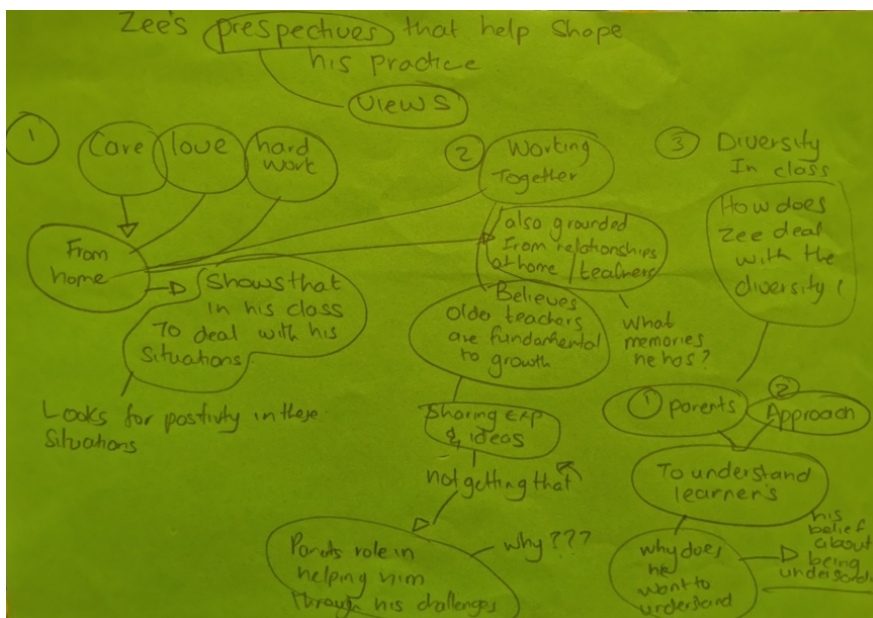 Zee's prespectives that help shape
his practice
views
1
Care love hard
work
From
home
Shows that
in his class
To deal with his
situations
Looks for postivity in these
situations
2
Working
Together
also grounded
from relationships
at home / teachers
Believes
older teachers
are fundamental
to growth
What
memories
he has?
Sharing exp
& ideas
not getting that
why???
role in
helping him
through his challenges
3 Diversity
In class
How does
Zee deal
with the
diversity
1 parents
2
Approach
To understand
learner's
why does
he
want to
understand
his
belief
about
being